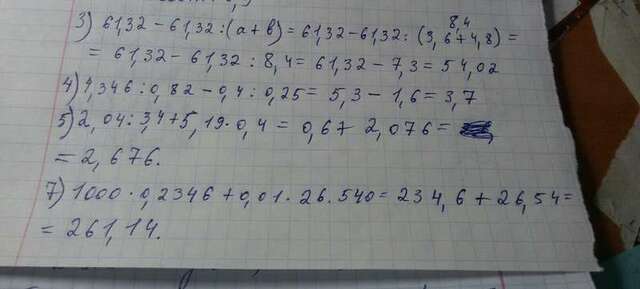 3) 61,32 - 61,32 : (a + b) = 61,32 - 61,32 : (3,6 + 4,8) =
8,4
= 61,32 - 61,32 : 8,4 = 61,32 - 7,3 = 54,02
4) 4,346 : 0,82 - 0,4 : 0,25 = 5,3 - 1,6 = 3,7
5) 2,04 : 3,4 + 5,19 · 0,4 = 0,6 + 2,076 =
= 2,676.
7) 1000 · 0,2346 + 0,01 · 26.540 = 234,6 + 26,54 =
= 261,14.